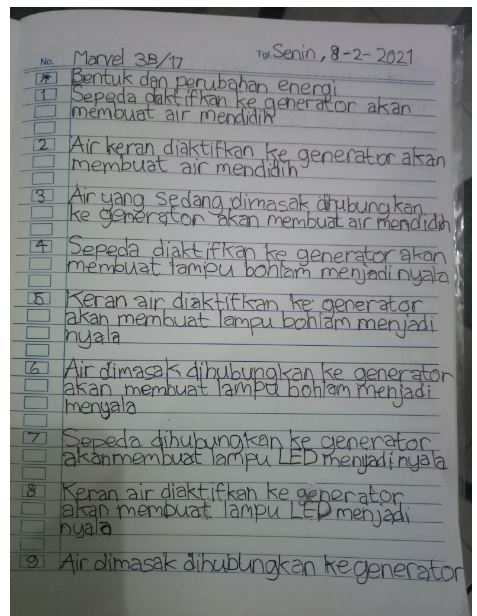 No. Marvel 3B/17 Tgl. Senin, 8-2-2021
* Bentuk dan perubahan energi
1 Sepeda diaktifkan ke generator akan
membuat air mendidih
2 Air keran diaktifkan ke generator akan
membuat air mendidih
3 Air yang sedang dimasak dihubungkan
ke generator akan membuat air mendidih
4 Sepeda diaktifkan ke generator akan
membuat lampu bohlam menjadi nyala
5 Keran air diaktifkan ke generator
akan membuat lampu bohlam menjadi
nyala
6 Air dimasak dihubungkan ke generator
akan membuat lampu bohlam menjadi
menyala
7 Sepeda dihubungkan ke generator
akan membuat lampu LED menjadi nyala
8 Keran air diaktifkan ke generator
akan membuat lampu LED menjadi
nyala
9 Air dimasak dihubungkan ke generator